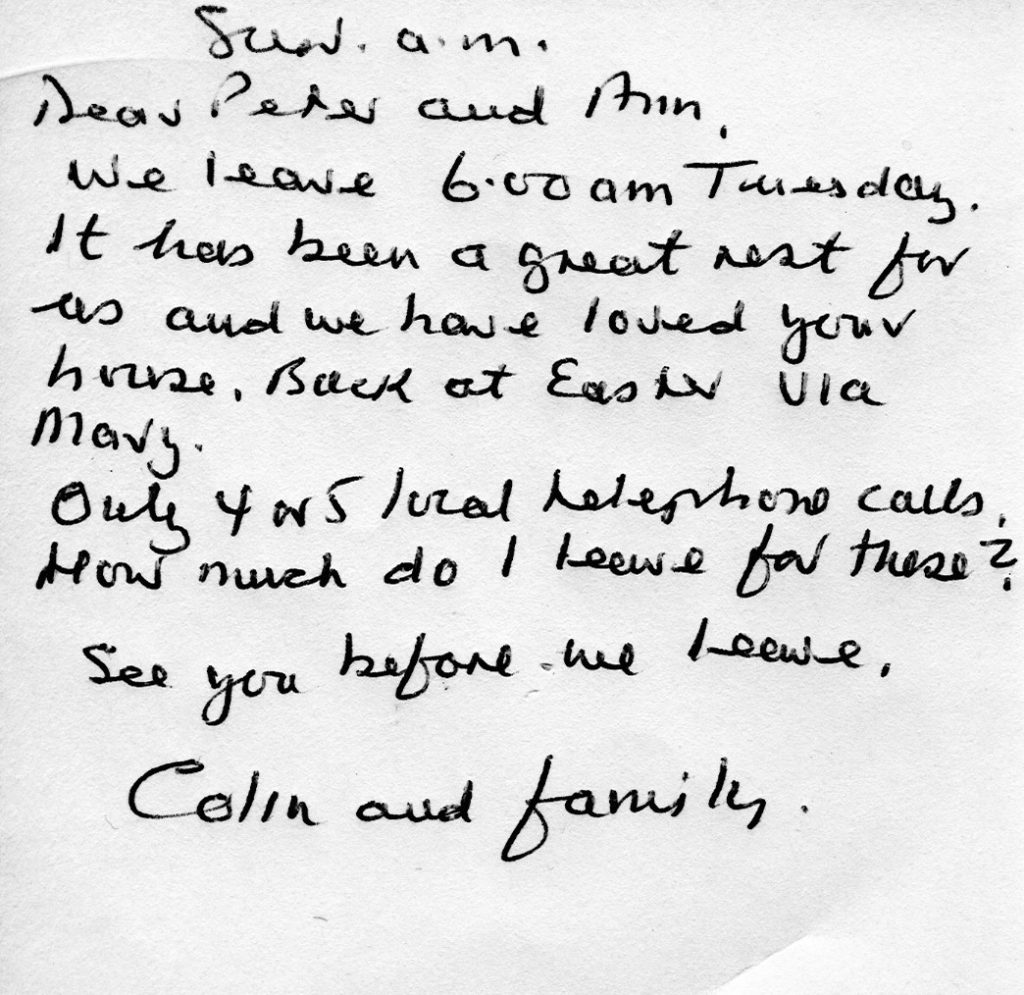 Sun. a.m.
Dear Peter and Ann,
We leave 6.00am Tuesday.
It has been a great rest for
us and we have loved your
house. Back at Easter via
Mary.
Only 4 or 5 local telephone calls.
How much do I leave for these?
See you before we leave.
Colin and family.